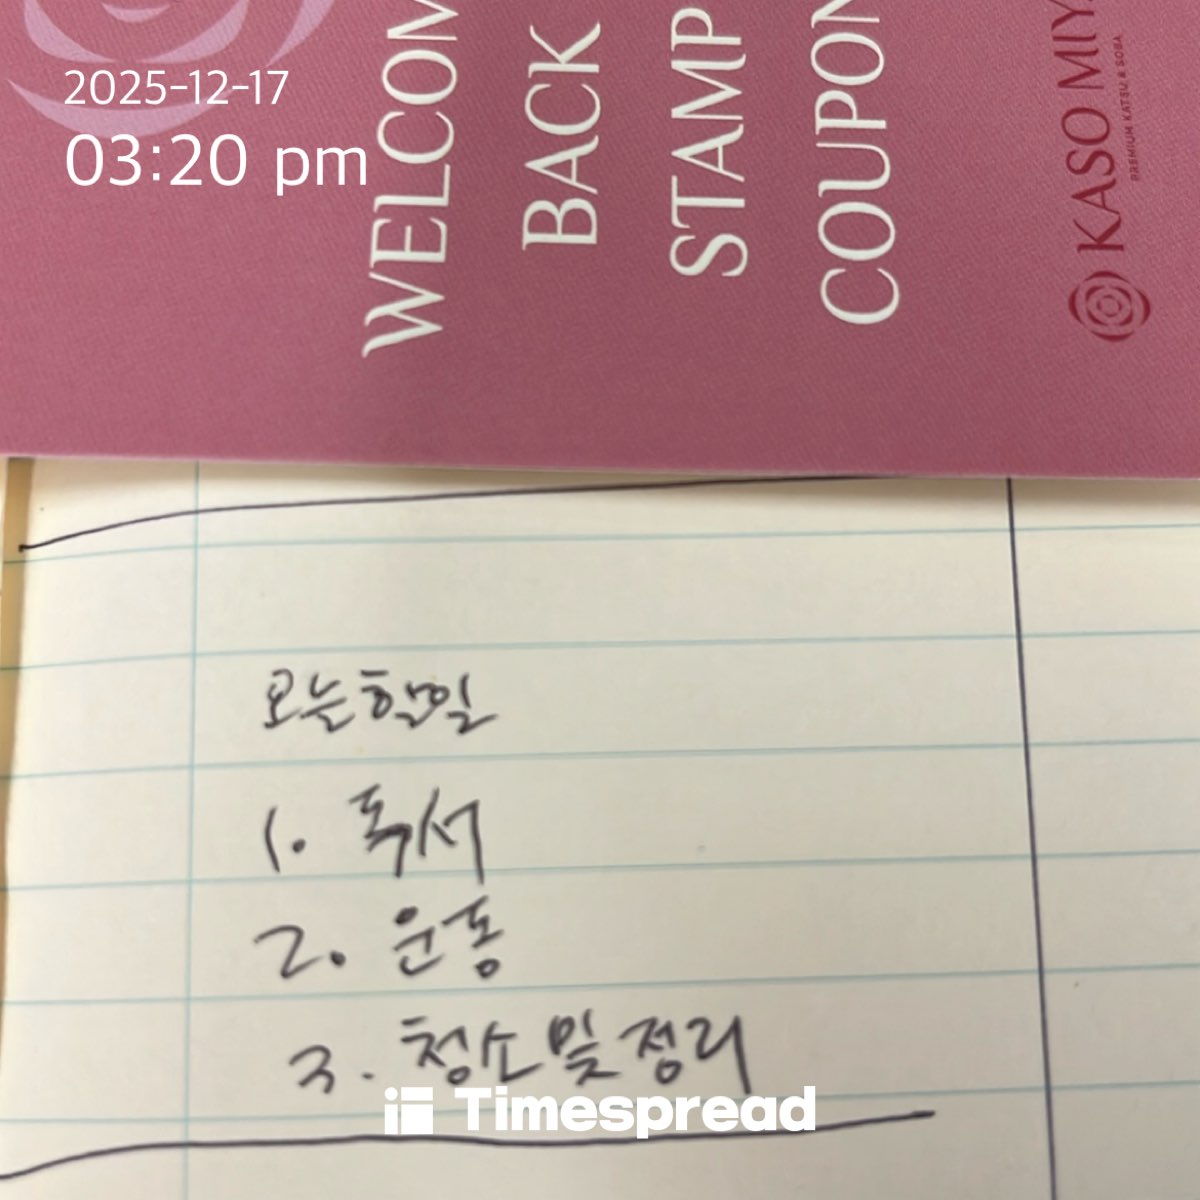 2025-12-17
03:20 pm
WELCOM
BACK
STAMP
COUPON
KASO MIY
PREMIUM KATSU & SOBA
오늘 할일
1. 독서
2. 운동
3. 청소 및 정리
Timespread